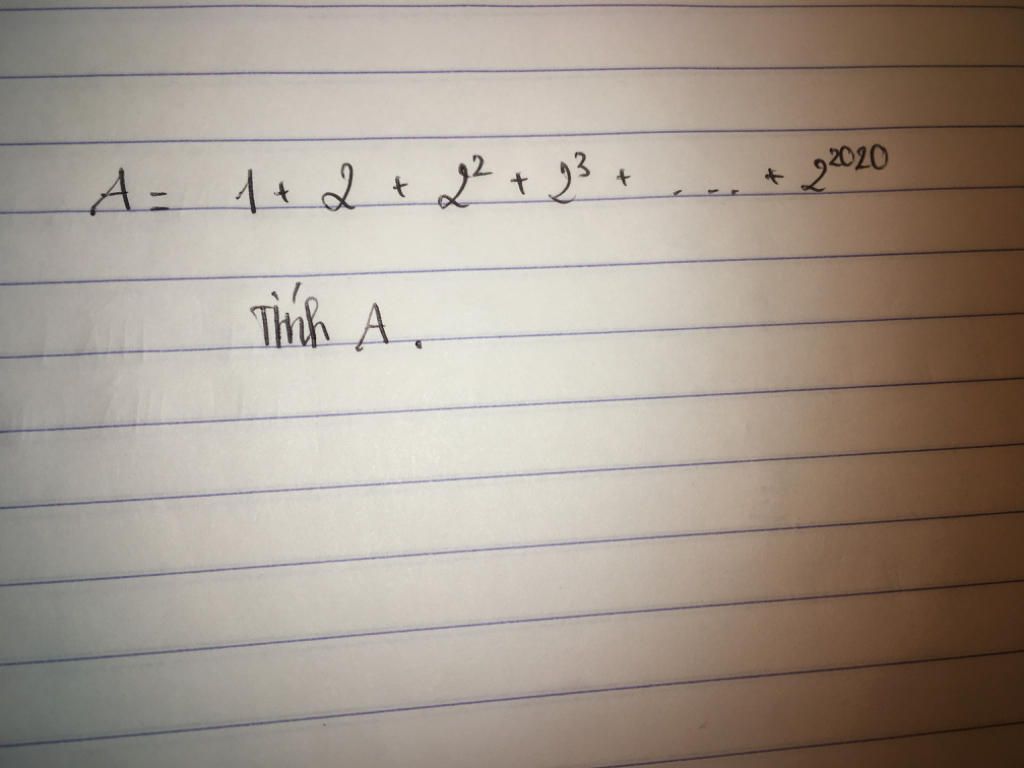 A = 1 + 2 + 2² + 2³ + ... + 2²⁰²⁰
Tính A.